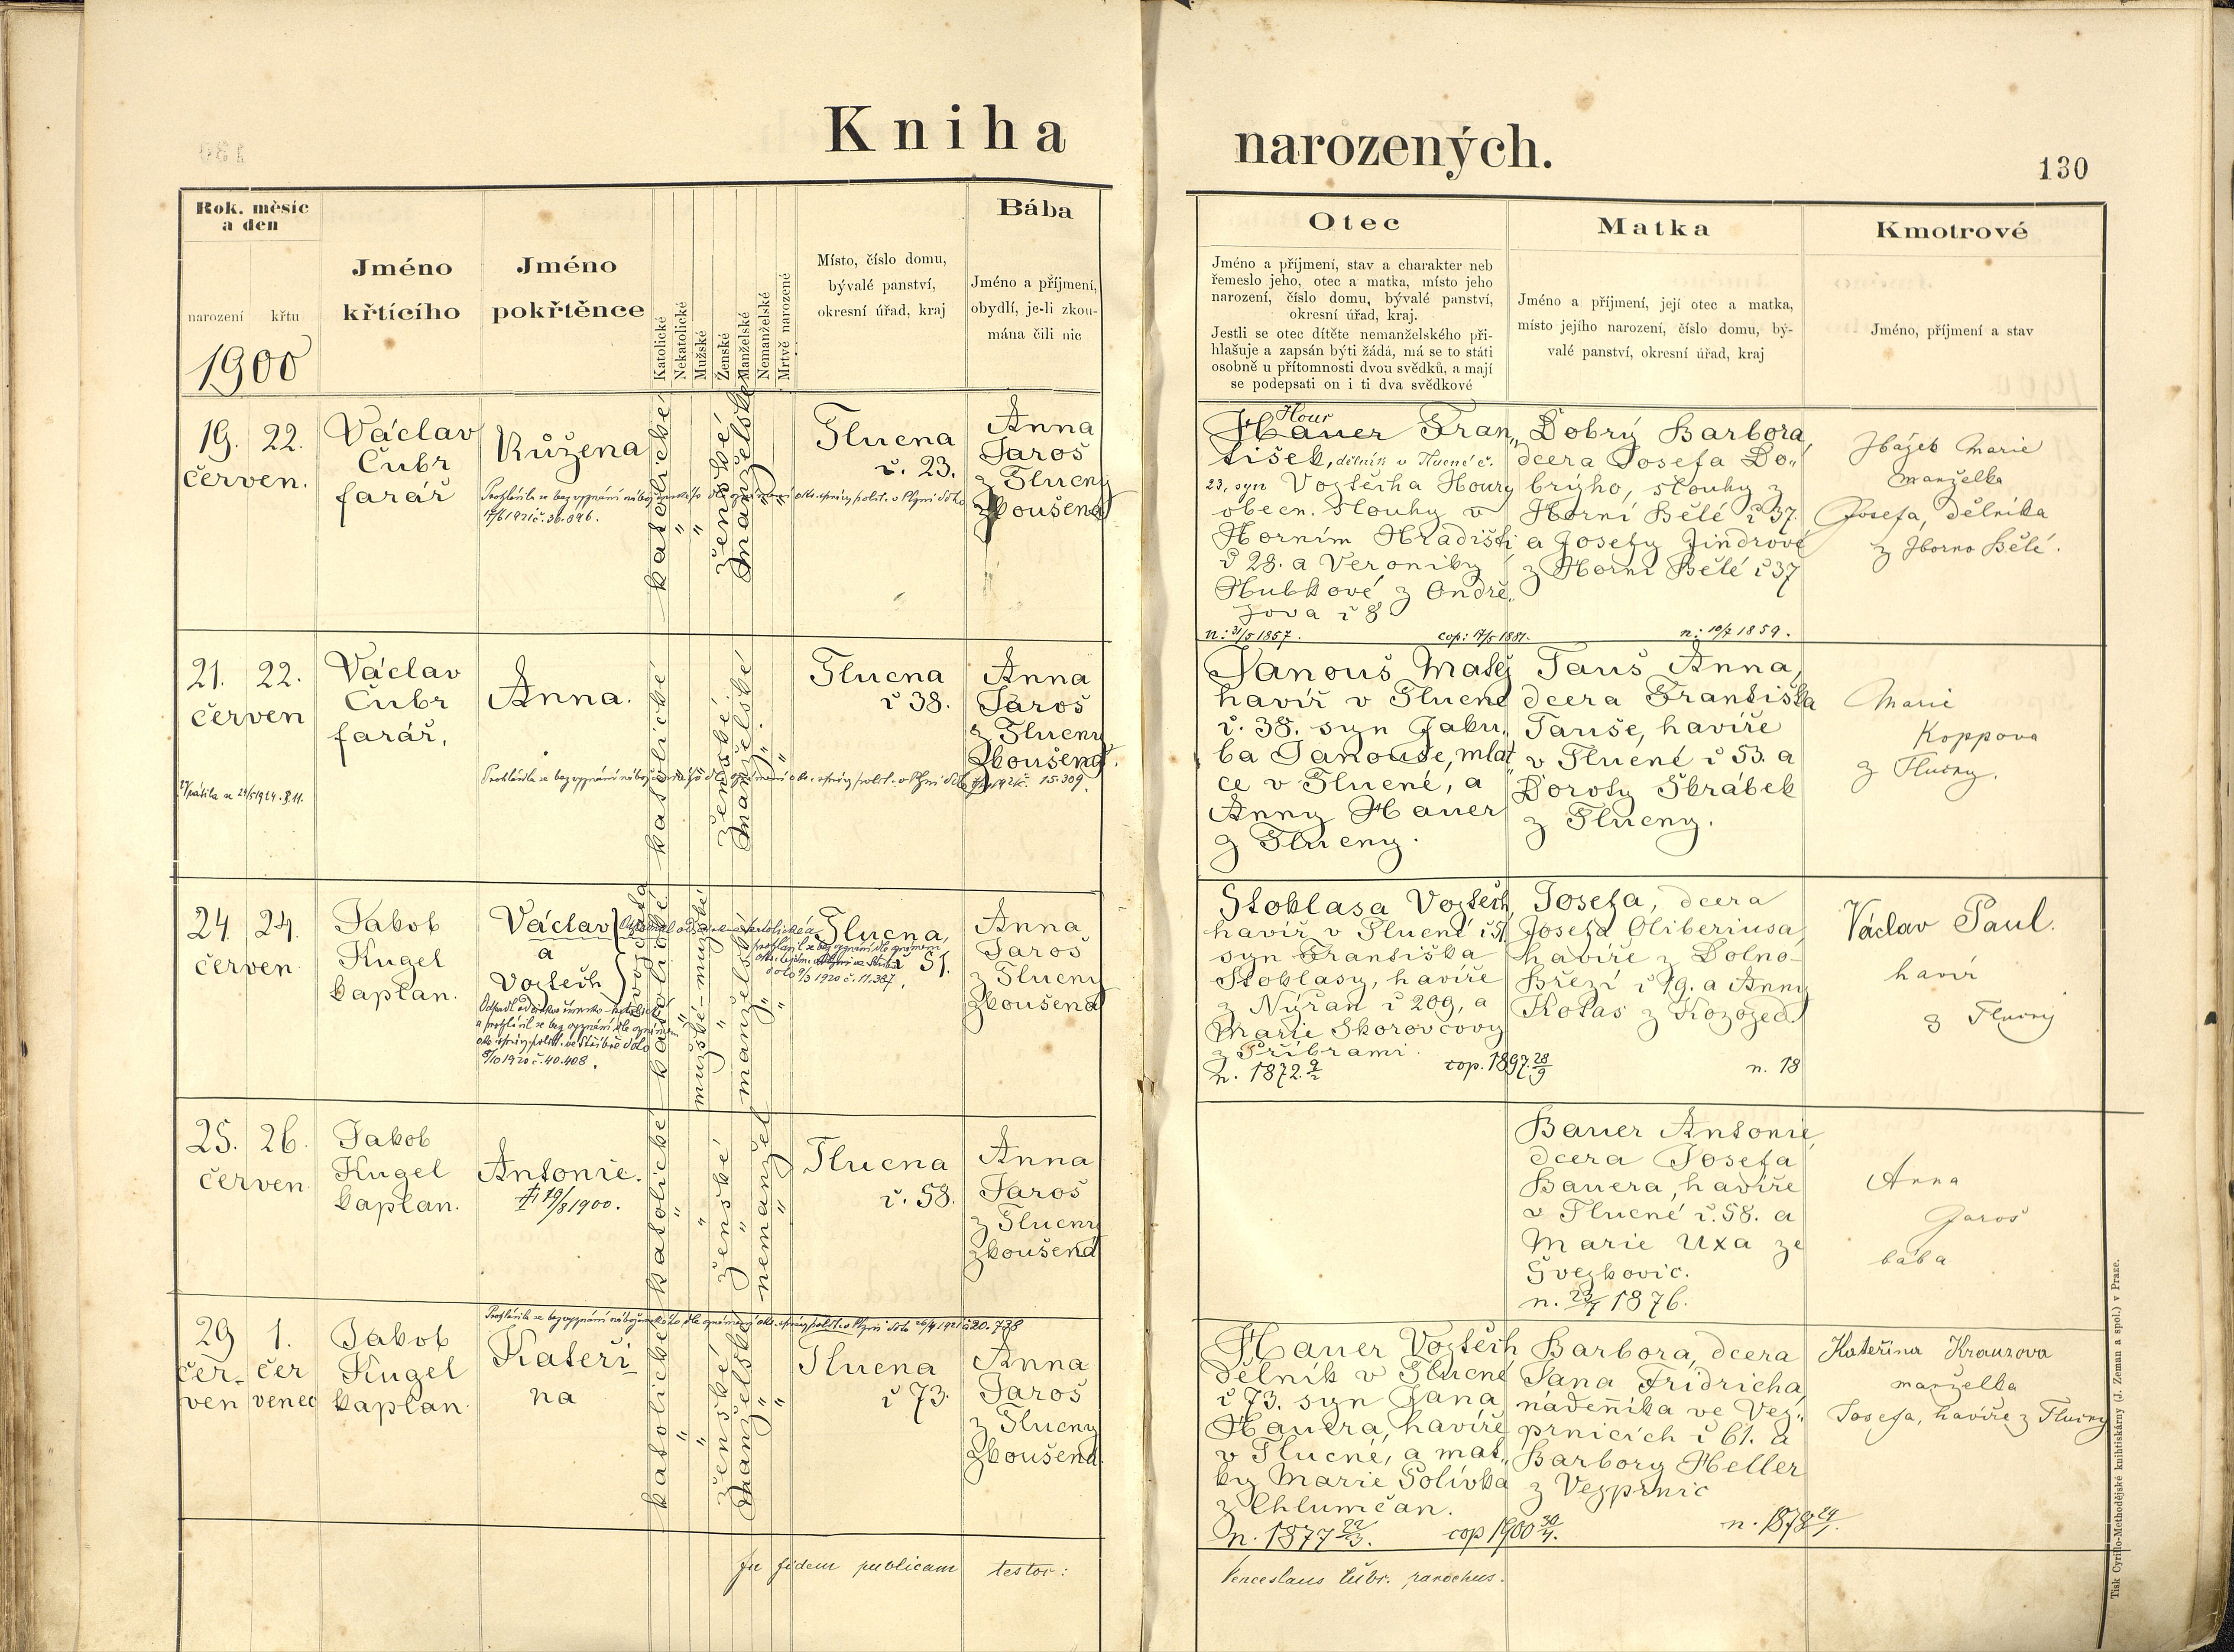 Kniha
narozených.
130
Rok, měsíc
a den
narození
křtu
1900
Jméno
křtícího
Jméno
pokřtěnce
Katolické
Nekatolické
Mužské
Ženské
Manželské
Nemanželské
Mrtvě narozené
Místo, číslo domu,
bývalé panství,
okresní úřad, kraj
Bába
Jméno a příjmení,
obydlí, je-li zkou-
mána čili nic
Otec
Jméno a příjmení, stav a charakter neb
řemeslo jeho, otec a matka, místo jeho
narození, číslo domu, bývalé panství,
okresní úřad, kraj.
Jestli se otec dítěte nemanželského při-
hlašuje a zapsán býti žádá, má se to státi
osobně u přítomnosti dvou svědků, a mají
se podepsati on i ti dva svědkové
Matka
Jméno a příjmení, její otec a matka,
místo jejího narození, číslo domu, bý-
valé panství, okresní úřad, kraj
Kmotrové
Jméno, příjmení a stav
19. 22.
červen.
Václav
Čubr
farář
Růžena
Prohlásila se bez vyznání náboženského dle oznámení okr. správy polit. v Plzni dto
17/6 1921 č. 36.096.
katolické
ženské
manželské
Tlucna
č. 23.
Anna
Jaroš
z Tlucny
zkoušená
Hour
Hauer Fran„
tišek, dělník v Tlucné č.
23, syn Vojtěcha Houry
obecn. slouhy v
Horním Hradišti
č 28. a Veroniky
Hubkové z Ondře„
jova č 8
n: 31/5 1857. cop: 17/5 1881.
Dobrý Barbora,
dcera Josefa Do„
brýho, slouhy z
Horní Bělé č 37.
a Josefy Jindrové
z Horní Bělé č 37
n: 10/7 1859.
Hájek Marie
manželka
Josefa, dělníka
z Horno Bělé.
21. 22.
červen
Václav
Čubr
farář,
Anna.
Prohlásila se bez vyznání náboženského dle oznámení okr. správy polit. v Plzni dto 15.309.
katolické
ženské
manželské
Tlucna
č 38.
Anna
Jaroš
z Tlucny
zkoušená.
Janouš Matěj
havíř v Tlucné
č. 38. syn Jaku„
ba Janouše, mlat„
ce v Tlucné, a
Anny Hauer
z Tlucny.
Tauš Anna,
dcera Františka
Tauše, havíře
v Tlucné č 53. a
Doroty Škrábek
z Tlucny.
Marie
Koppova
z Tlucny.
24. 24.
červen
Jakob
Kugel
kaplan.
Václav
a
Vojtěch
dvojčata
Odpadl od církve římsko-katolické
a prohlásil se bez vyznání dle oznámení
okr. správy polit. ve Stříbře dto
8/10 1920 č. 40.408.
prohlásil se bez vyznání dle oznámení
dto 9/3 1920 č. 11.387.
katolické katolické
mužské – mužské
manželské
Tlucna,
č 51.
Anna
Jaroš
z Tlucny
zkoušená
Stoklasa Vojtěch,
havíř v Tlucné č 51,
syn Františka
Stoklasy, havíře
z Nýřan č 209, a
Marie Skorovcovy
z Příbrami.
n. 1872 9/2 cop. 1897 28/9
Josefa, dcera
Josefa Oliberiusa,
havíře z Dolno-
Březí č 19. a Anny
Kolas z Kozojed.
n. 18
Václav Paul.
havíř
z Tlucny
25. 26.
červen
Jakob
Kugel
kaplan.
Antonie.
† 19/8 1900.
katolické
ženské
nemanžel
Tlucna
č. 58.
Anna
Jaroš
z Tlucny
zkoušená
Bauer Antonie,
dcera Josefa
Bauera, havíře
v Tlucné č. 58. a
Marie Uxa ze
Švejkovic.
n. 23/7 1876.
Anna
Jaroš
bába
29 1.
čer- čer
ven venec
Jakob
Kugel
kaplan.
Prohlásila se bez vyznání náboženského dle oznámení okr. správy polit. v Plzni dto 26/4 1921 č 20.738
Kateři-
na
katolické
ženské
manželské
Tlucna
č 73.
Anna
Jaroš
z Tlucny
zkoušená.
Hauer Vojtěch
dělník v Tlucné
č 73. syn Jana
Hauera, havíře
v Tlucné, a mat„
ky Marie Polívka
z Chlumčan.
n. 1877 22/3. cop 1900 30/4.
Barbora, dcera
Jana Fridricha,
nádeníka ve Vej„
prnicích č 61. a
Barbory Heller
z Vejprnic
n. 1878 24/1.
Kateřina Krauzova
manželka
Josefa, havíře z Tlucny
In fidem publicam testor:
Venceslaus Čubr. parochus.
Tisk Cyrillo-Methodějské knihtiskárny (J. Zeman a spol.) v Praze.